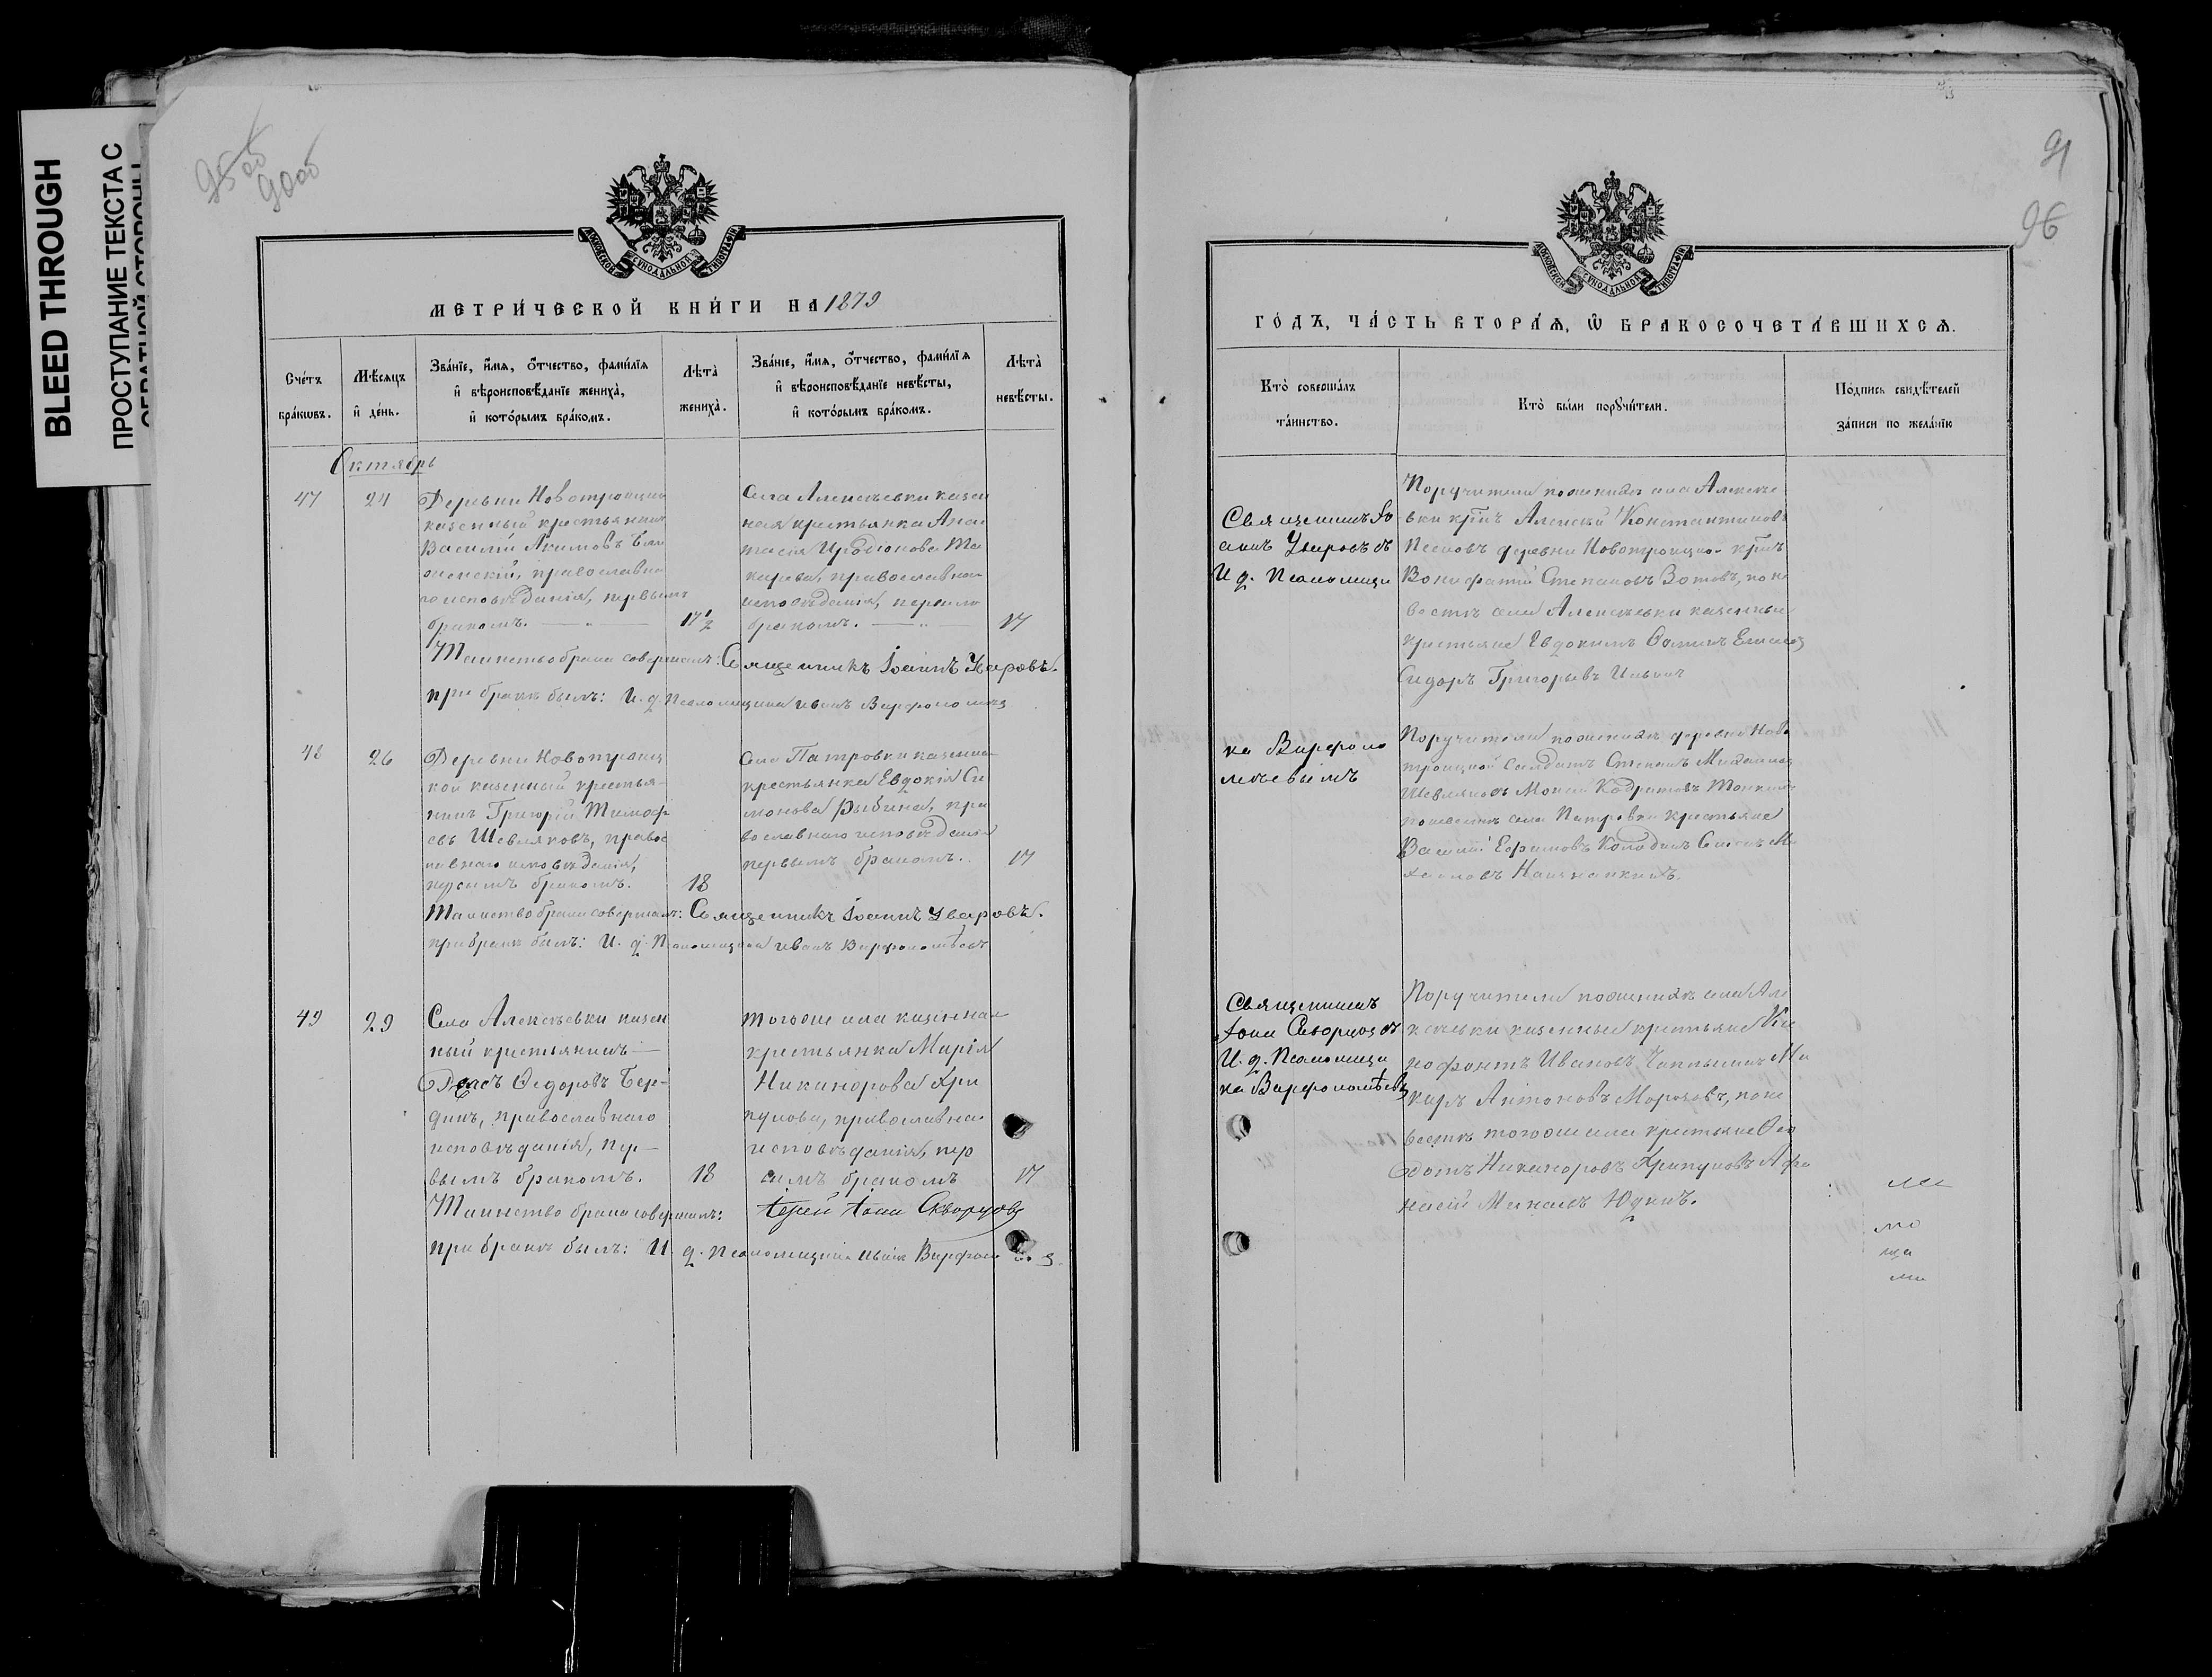 BLEED THROUGH
ПРОСТУПАНИЕ ТЕКСТА С
ОБРАТНОЙ СТОРОНЫ
95 об
90 об
МОСКОВСКОЙ СѴНОДАЛЬНОЙ ТИПОГРАФІИ
МЕТРИ́ЧЕСКОЙ КНИ́ГИ НА 1879
Сче́тъ бра́кωвъ.
Мѣ́сяцъ и де́нь.
Зва́нїе, и́мѧ, ѻ҆́тчество, фами́лїѧ
и҆ вѣроисповѣ́данїе жениха̀,
и҆ кото́рымъ бра́комъ.
Лѣта̀ жениха̀.
Зва́нїе, и́мѧ, ѻ҆́тчество, фами́лїѧ
и҆ вѣроисповѣ́данїе невѣ́сты,
и҆ кото́рымъ бра́комъ.
Лѣта̀ невѣ́сты.
Октябрь
47
24
Деревни Новотроицкой
казенный крестьянинъ
Василій Акимовъ
православна
го исповѣданія, первымъ
бракомъ.
17 1/2
Села Алексѣевки казен
ная крестьянка Анас
тасія Иродіонова Ма
карова, православнаго
исповѣданія, первымъ
бракомъ.
17
Таинство брака совершалъ: Священникъ Іоаннъ Уваровъ.
при бракѣ былъ: И. д. Псаломщика Иванъ Варфоломѣев
48
26
Деревни Новотроиц
кой казенный крестья-
нинъ Григорій Тимоф
евъ Шевляковъ, правос
лавнаго исповѣданія,
первымъ бракомъ.
18
Села Патровки казенная
крестьянка Евдокія Си
монова Рыбина, пра
вославнаго исповѣданія
первымъ бракомъ.
17
Таинство брака совершалъ: Священникъ Іоаннъ Уваровъ.
при бракѣ былъ: И. д. Псаломщика Иванъ Варфоломѣевъ
49
29
Села Алексѣевки казен
ный крестьянинъ
Ѳедоровъ Бер-
динъ, православнаго
исповѣданія, пер-
вымъ бракомъ.
18
тогоже села казенная
крестьянка Марія
Никанорова Хри
пунова, православнаго
исповѣданія, пер
вымъ бракомъ
17
Таинство брака совершалъ: Іерей Іона Скворцовъ
при бракѣ былъ: И. д. Псаломщика Иванъ
91
96
МОСКОВСКОЙ СѴНОДАЛЬНОЙ ТИПОГРАФІИ
ГО́ДЪ, ЧА́СТЬ ВТОРА́Ѧ, Ѽ БРАКОСОЧЕТА́ВШИХСѦ.
Кто̀ соверша́лъ
та́инство.
Кто̀ бы́ли порꙋчи́тели.
По́дпись свидѣ́телей
за́писи по жела́нїю
Священникъ Іо
аннъ Уваровъ съ
И. д. Псаломщи
ка Варфоло
меевымъ
Поручители по женихѣ села Алексѣе
вки кр̃нъ Алексѣй Константиновъ
деревни Новотроицкой кр̃нъ
Вонифатій Степановъ Зотовъ, по не
вѣстѣ села Алексѣевки казенные
крестьяне Евдокимъ
Сидоръ Григорьевъ
Поручители по женихѣ деревни Ново
троицкой Солдатъ Степанъ Михайловъ
Шевляковъ Моисей
по невѣстѣ села Патровки крестьяне
Василій Ефимовъ
Священникъ
Іона Скворцовъ съ
И. д. Псаломщи
ка Варфоломѣевъ
Поручители по женихѣ села Але
ксѣевки казенные крестьяне Ксе
нофонтъ Ивановъ Ма
каръ Антоновъ Морозовъ, по не
вѣстѣ тогоже села крестьяне Ѳео
дотъ Никаноровъ Хрипуновъ Афа
насій Юдинъ.